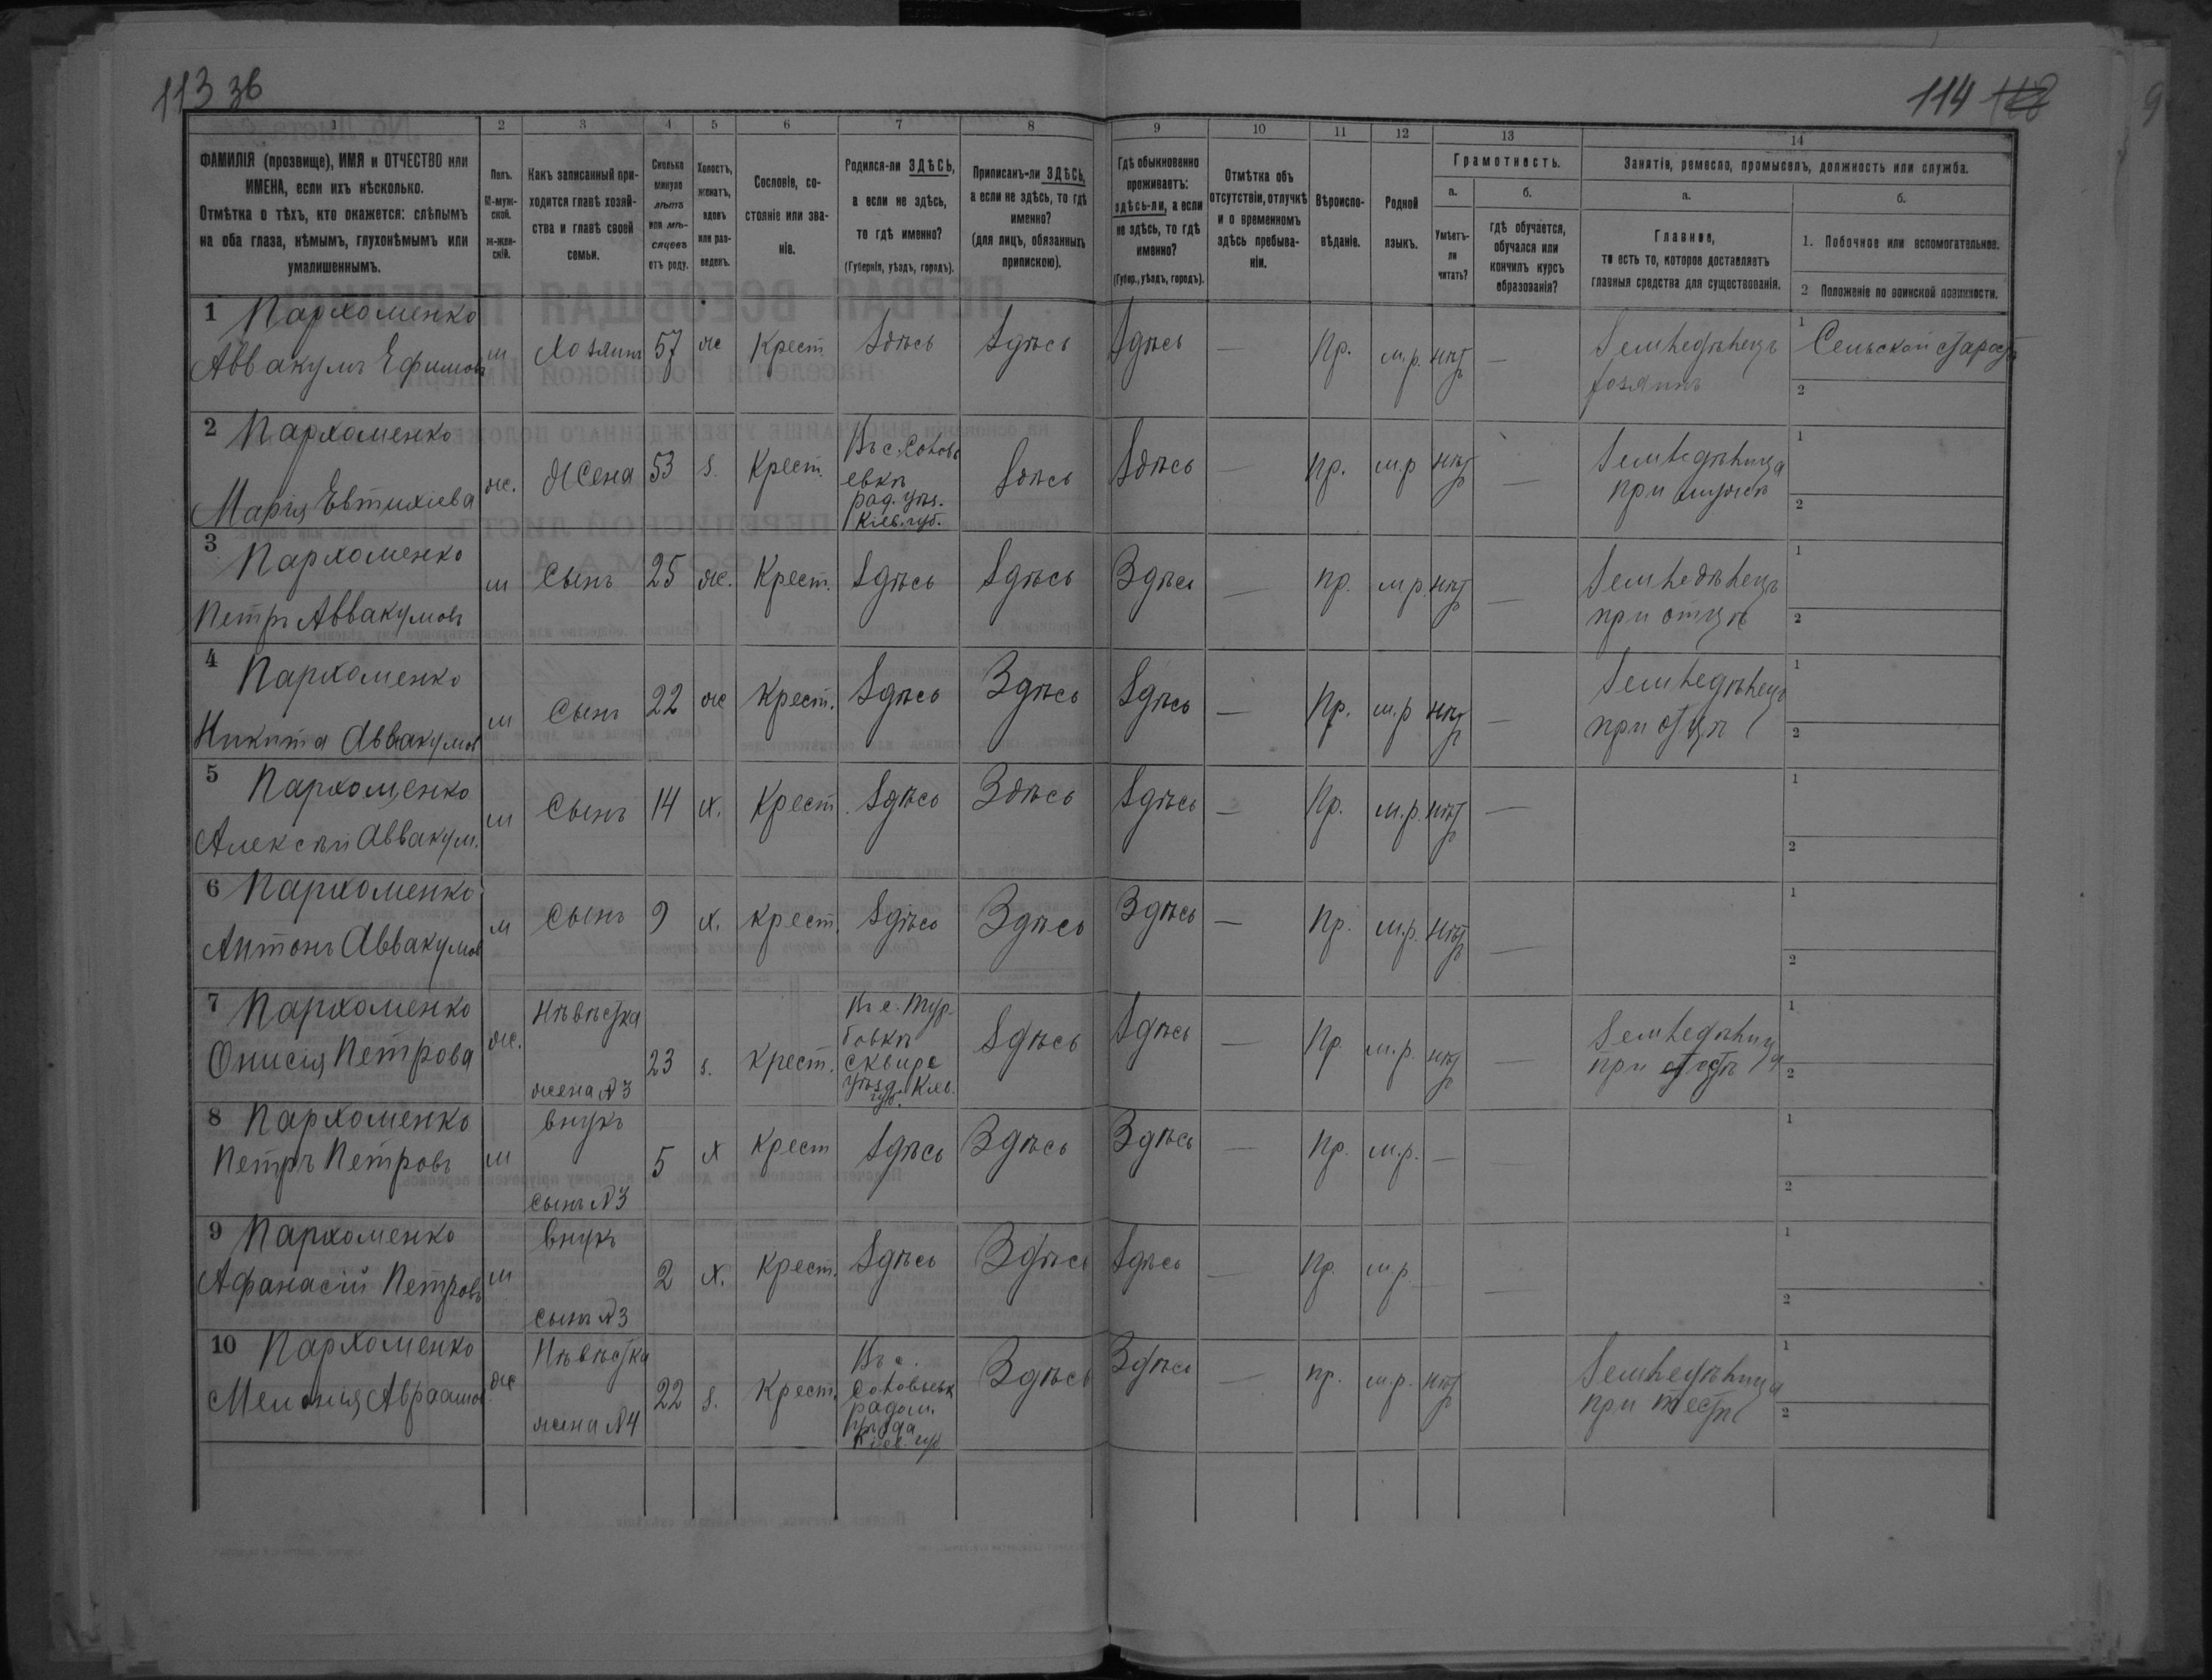 113 зв
114 112
1 2 3 4 5 6 7 8 9 10 11 12 13 14
ФАМИЛІЯ (прозвище), ИМЯ и ОТЧЕСТВО или
ИМЕНА, если ихъ нѣсколько.
Отмѣтка о тѣхъ, кто окажется: слѣпымъ
на оба глаза, нѣмымъ, глухонѣмымъ или
умалишеннымъ.
Полъ.
М-муж-
ской.
ж-жен-
скій.
Какъ записанный при-
ходится главѣ хозяй-
ства и главѣ своей
семьи.
Сколько
минуло
лѣтъ
или мѣ-
сяцевъ
отъ роду.
Холостъ,
женатъ,
вдовъ
или раз-
веденъ.
Сословіе, со-
стояніе или зва-
ніе.
Родился-ли ЗДѢСЬ,
а если не здѣсь,
то гдѣ именно?
(Губернія, уѣздъ, городъ).
Приписанъ-ли ЗДѢСЬ,
а если не здѣсь, то гдѣ
именно?
(для лицъ, обязанныхъ
припискою).
Гдѣ обыкновенно
проживаетъ:
здѣсь-ли, а если
не здѣсь, то гдѣ
именно?
(Губер., уѣздъ, городъ).
Отмѣтка объ
отсутствіи, отлучкѣ
и о временномъ
здѣсь пребыва-
ніи.
Вѣроиспо-
вѣданіе.
Родной
языкъ.
Грамотность.
а.
Умѣетъ-
ли
читать?
б.
гдѣ обучается,
обучался или
кончилъ курсъ
образованія?
Занятіе, ремесло, промыселъ, должность или служба.
а.
Главное,
то есть то, которое доставляетъ
главныя средства для существованія.
б.
1. Побочное или вспомогательное.
2 Положеніе по воинской повинности.
1 Пархоменко
Аввакумъ Ефимовъ м Хозяинъ 57 ж Крест Здѣсь Здѣсь Здѣсь — Пр. м.р. нѣтъ —
Земледѣлецъ
хозяинъ
1 Сельской староста
2
2 Пархоменко
Марія Евтихіева ж. Жена 53 з. Крест.
Въ с.
евкѣ
рад. уѣз.
Кіев. губ.
Здѣсь Здѣсь — Пр. м.р нѣтъ —
Земледѣлица
при мужѣ
1
2
3 Пархоменко
Петръ Аввакумовъ м Сынъ 25 ж. Крест. Здѣсь Здѣсь Здѣсь — пр. м.р. нѣтъ —
Земледѣлецъ
при отцѣ
1
2
4 Пархоменко
Никита Аввакумов м Сынъ 22 ж Крест. Здѣсь Здѣсь Здѣсь — Пр. м.р нѣтъ —
Земледѣлецъ
при отцѣ
1
2
5 Пархоменко
Алексѣй Аввакум. м Сынъ 14 х. Крест. Здѣсь Здѣсь Здѣсь — Пр. м.р. нѣтъ —
1
2
6 Пархоменко
Антонъ Аввакумов м Сынъ 9 х. Крест. Здѣсь Здѣсь Здѣсь — Пр. м.р. нѣтъ —
1
2
7 Пархоменко
Онисія Петрова ж.
Нѣвѣстка
жена №3
23 з. Крест.
Въ с. Тур-
бовкѣ
сквирс
уѣзд. Кіев.
губ.
Здѣсь Здѣсь — Пр. м.р. нѣтъ
Земледѣлица
при
1
2
8 Пархоменко
Петръ Петровъ м
внукъ
сынъ №3
5 х Крест Здѣсь Здѣсь Здѣсь — Пр. м.р. — —
1
2
9 Пархоменко
Афанасій Петровъ м
внукъ
сынъ №3
2 х. Крест. Здѣсь Здѣсь Здѣсь — Пр. м.р —
1
2
10 Пархоменко
Меланія Авраамов ж
Нѣвѣстка
жена №4
22 з. Крест.
Въ с.
радом.
уѣзда
Кіев. губ
Здѣсь Здѣсь — пр. м.р. нѣтъ —
Земледѣлица
при тестѣ
1
2